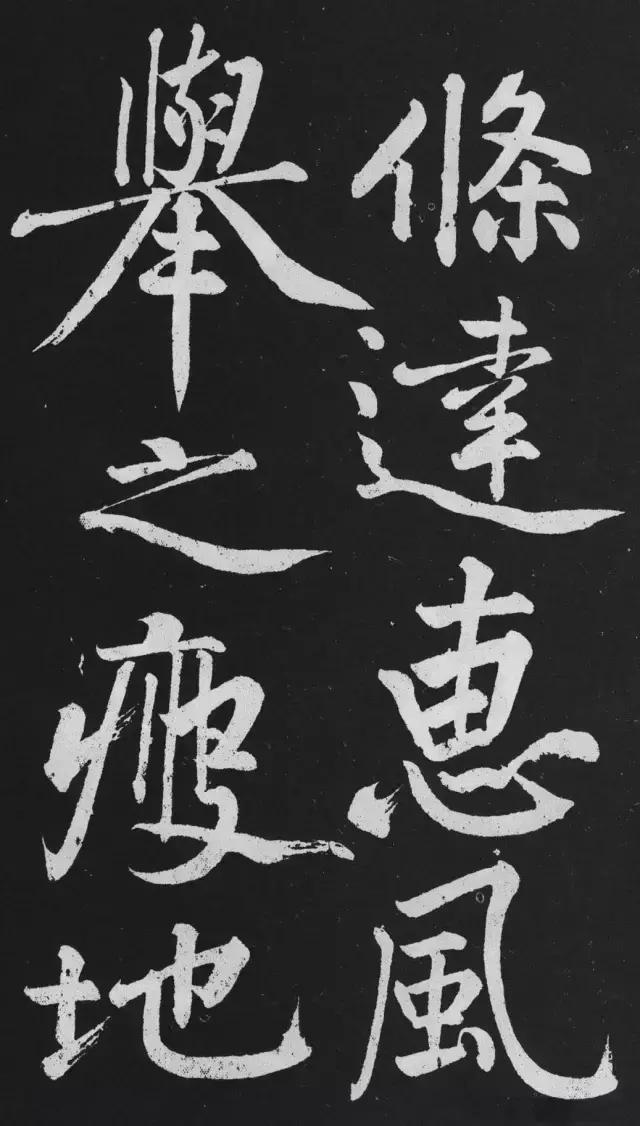 條達惠風
舉之疲地